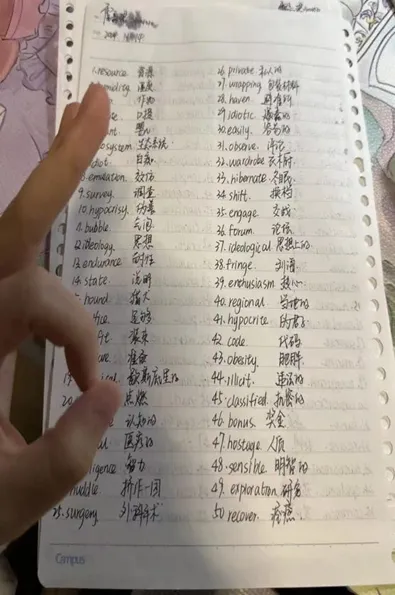 1.resource 资源
26. private 私人的
27. wrapping 包装材料
28. haven
29. idiotic
30. equity.
osystem 生态系统
31. observe. 评论
diot 白痴
32. wardrobe 衣橱
8. emulation 效仿
33. hibernate 冬眠
9. survey. 调查
34. shift. 换档
10. hypocrisy. 伪善
35. engage 交战
11. bubble
36. forum 论坛
12. ideology. 思想
37. ideological 思想上的
13. endurance 耐性
38. fringe. 刘海
14. state 说明
39. enthusiasm 热心
hound 猎犬
40. regional
fice 足够
41. hypocrite 伪君子
42. code 代码
are 准备
43. obesity. 肥胖
ical 歇斯底里的
44. illicit. 违法的
20. 点燃
45. classified. 机密的
认知的
46. bonus. 奖金
al 医疗的
47. hostage 人质
lligence 智力
48. sensible 明智的
huddle 挤作一团
49. exploration 研究
25. surgery 外科手术
50 recover. 痊愈
Campus